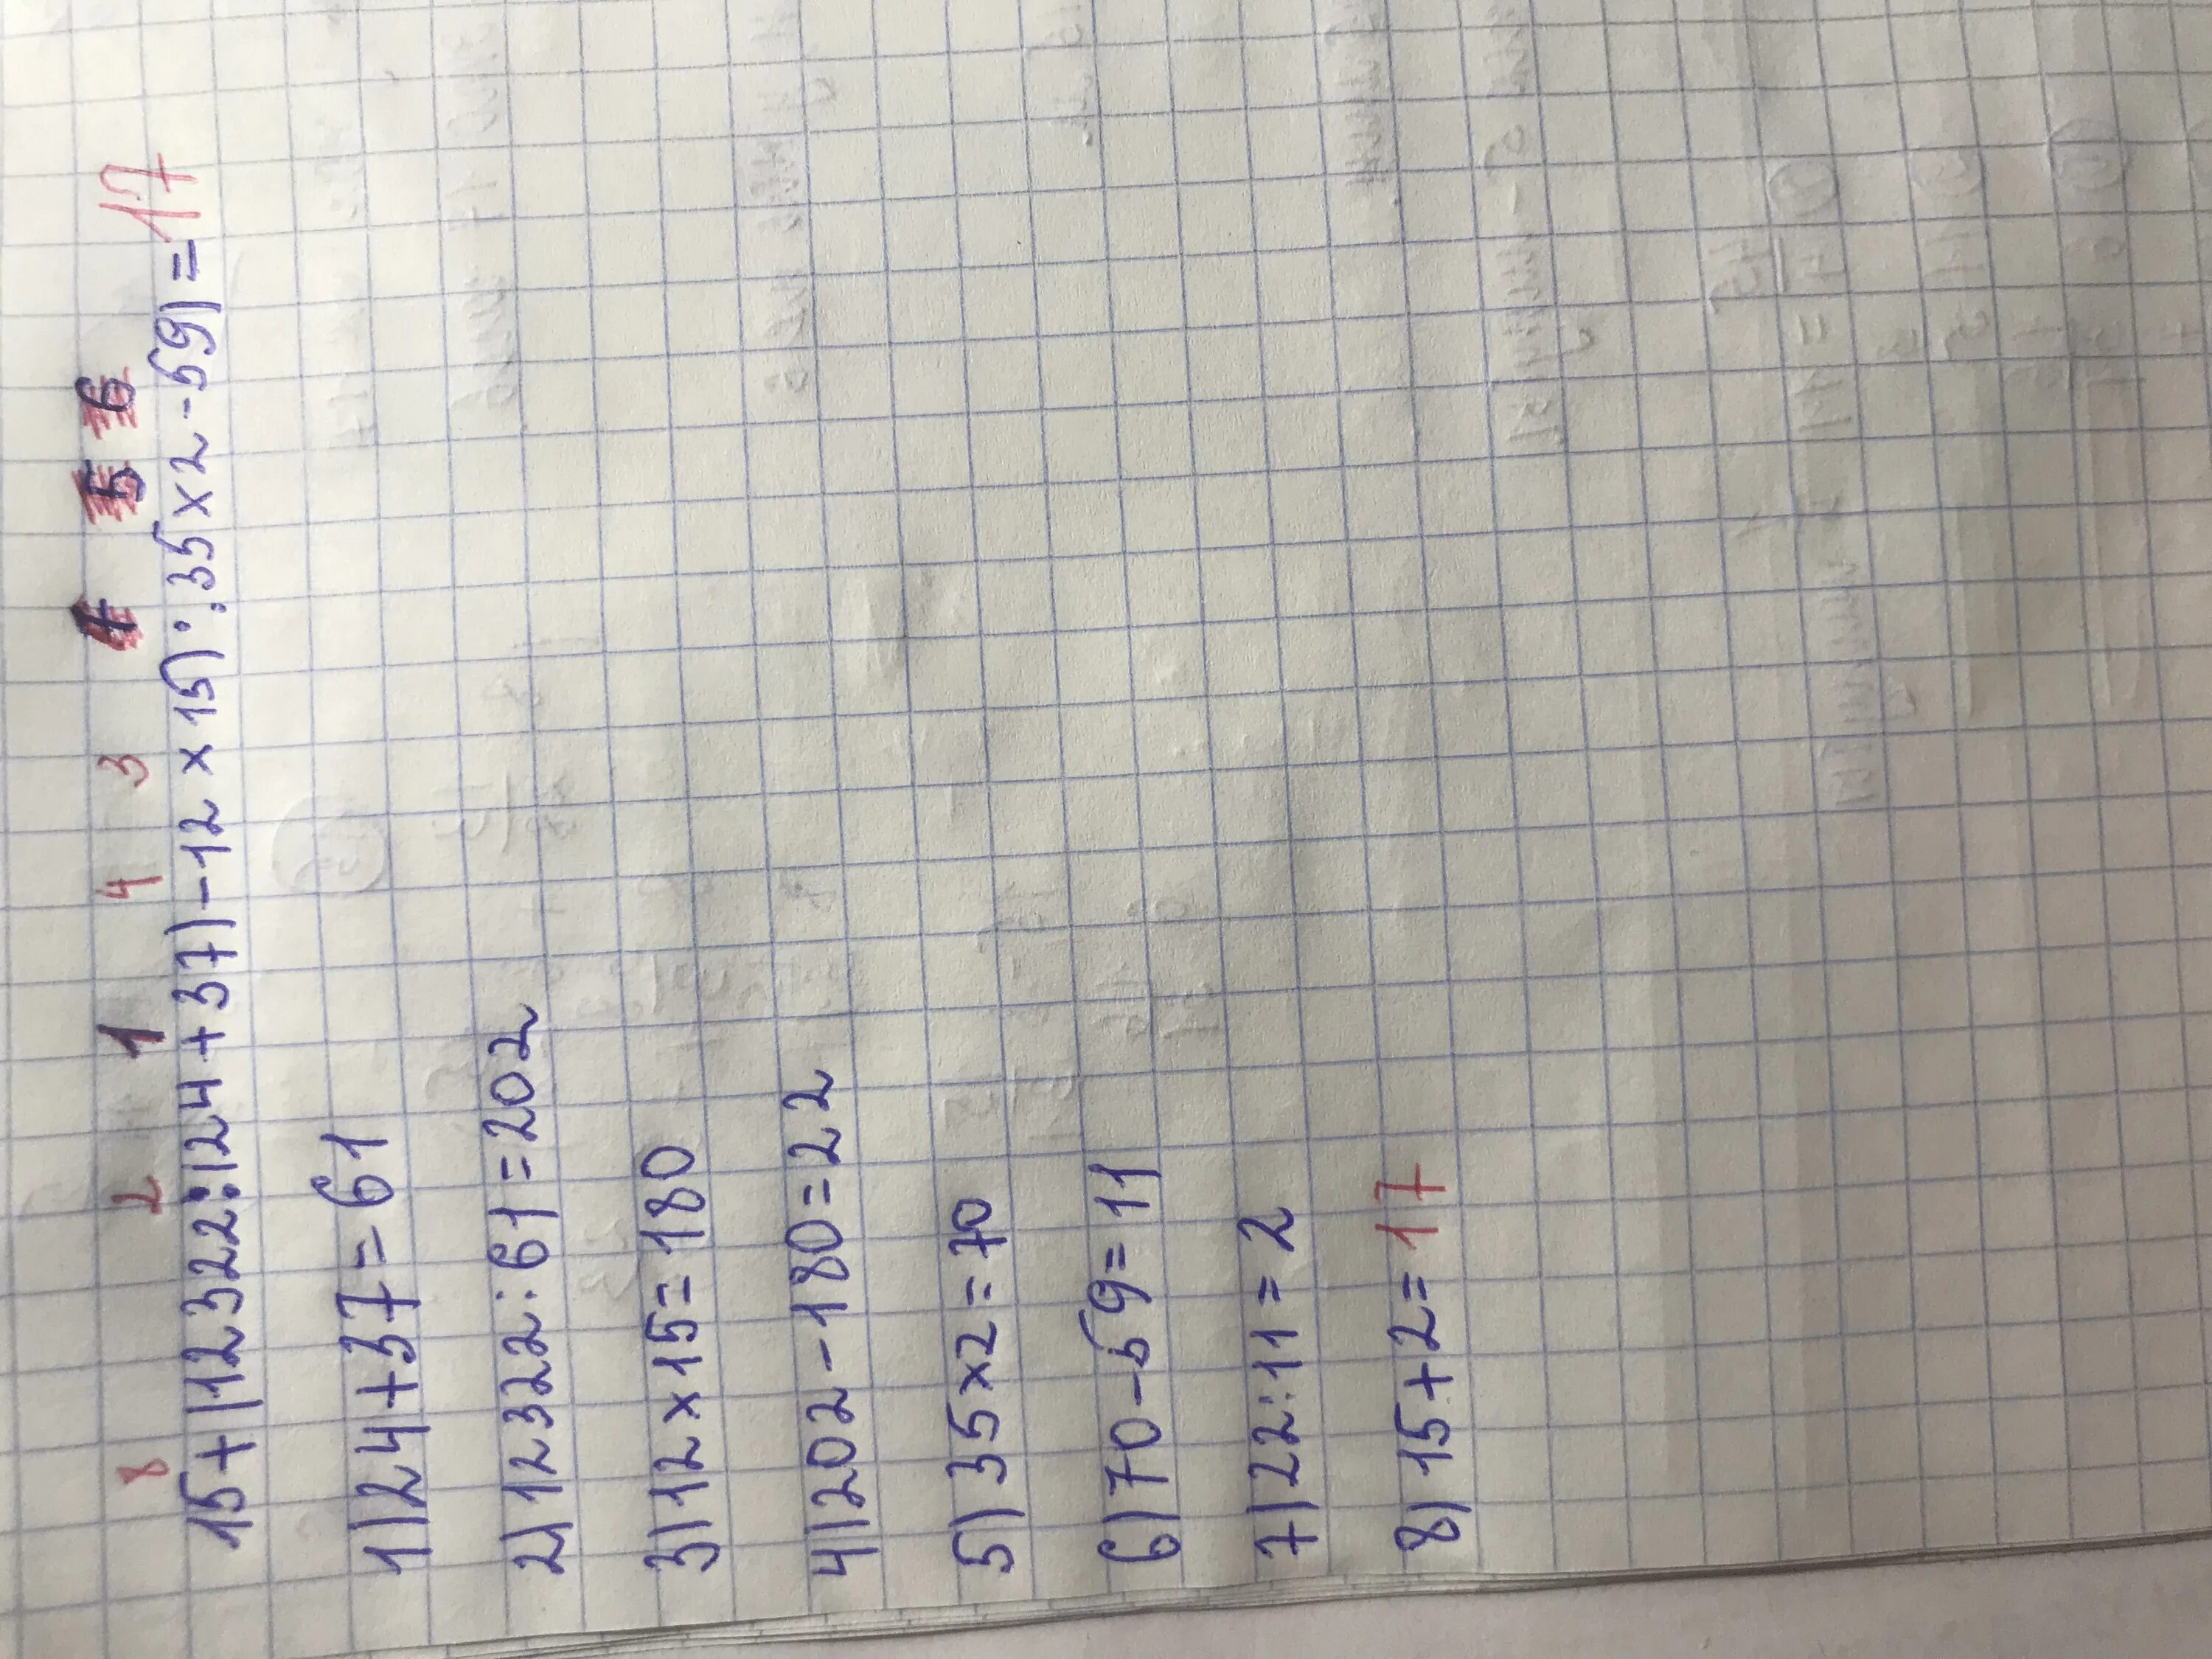 8 2 1 4 3 7 5 6
15+(12322:(24+37)-12×15):(35×2-59)=17
1)24+37=61
2)12322:61=202
3)12×15=180
4)202-180=22
5)35×2=70
6)70-59=11
7)22:11=2
8)15+2=17